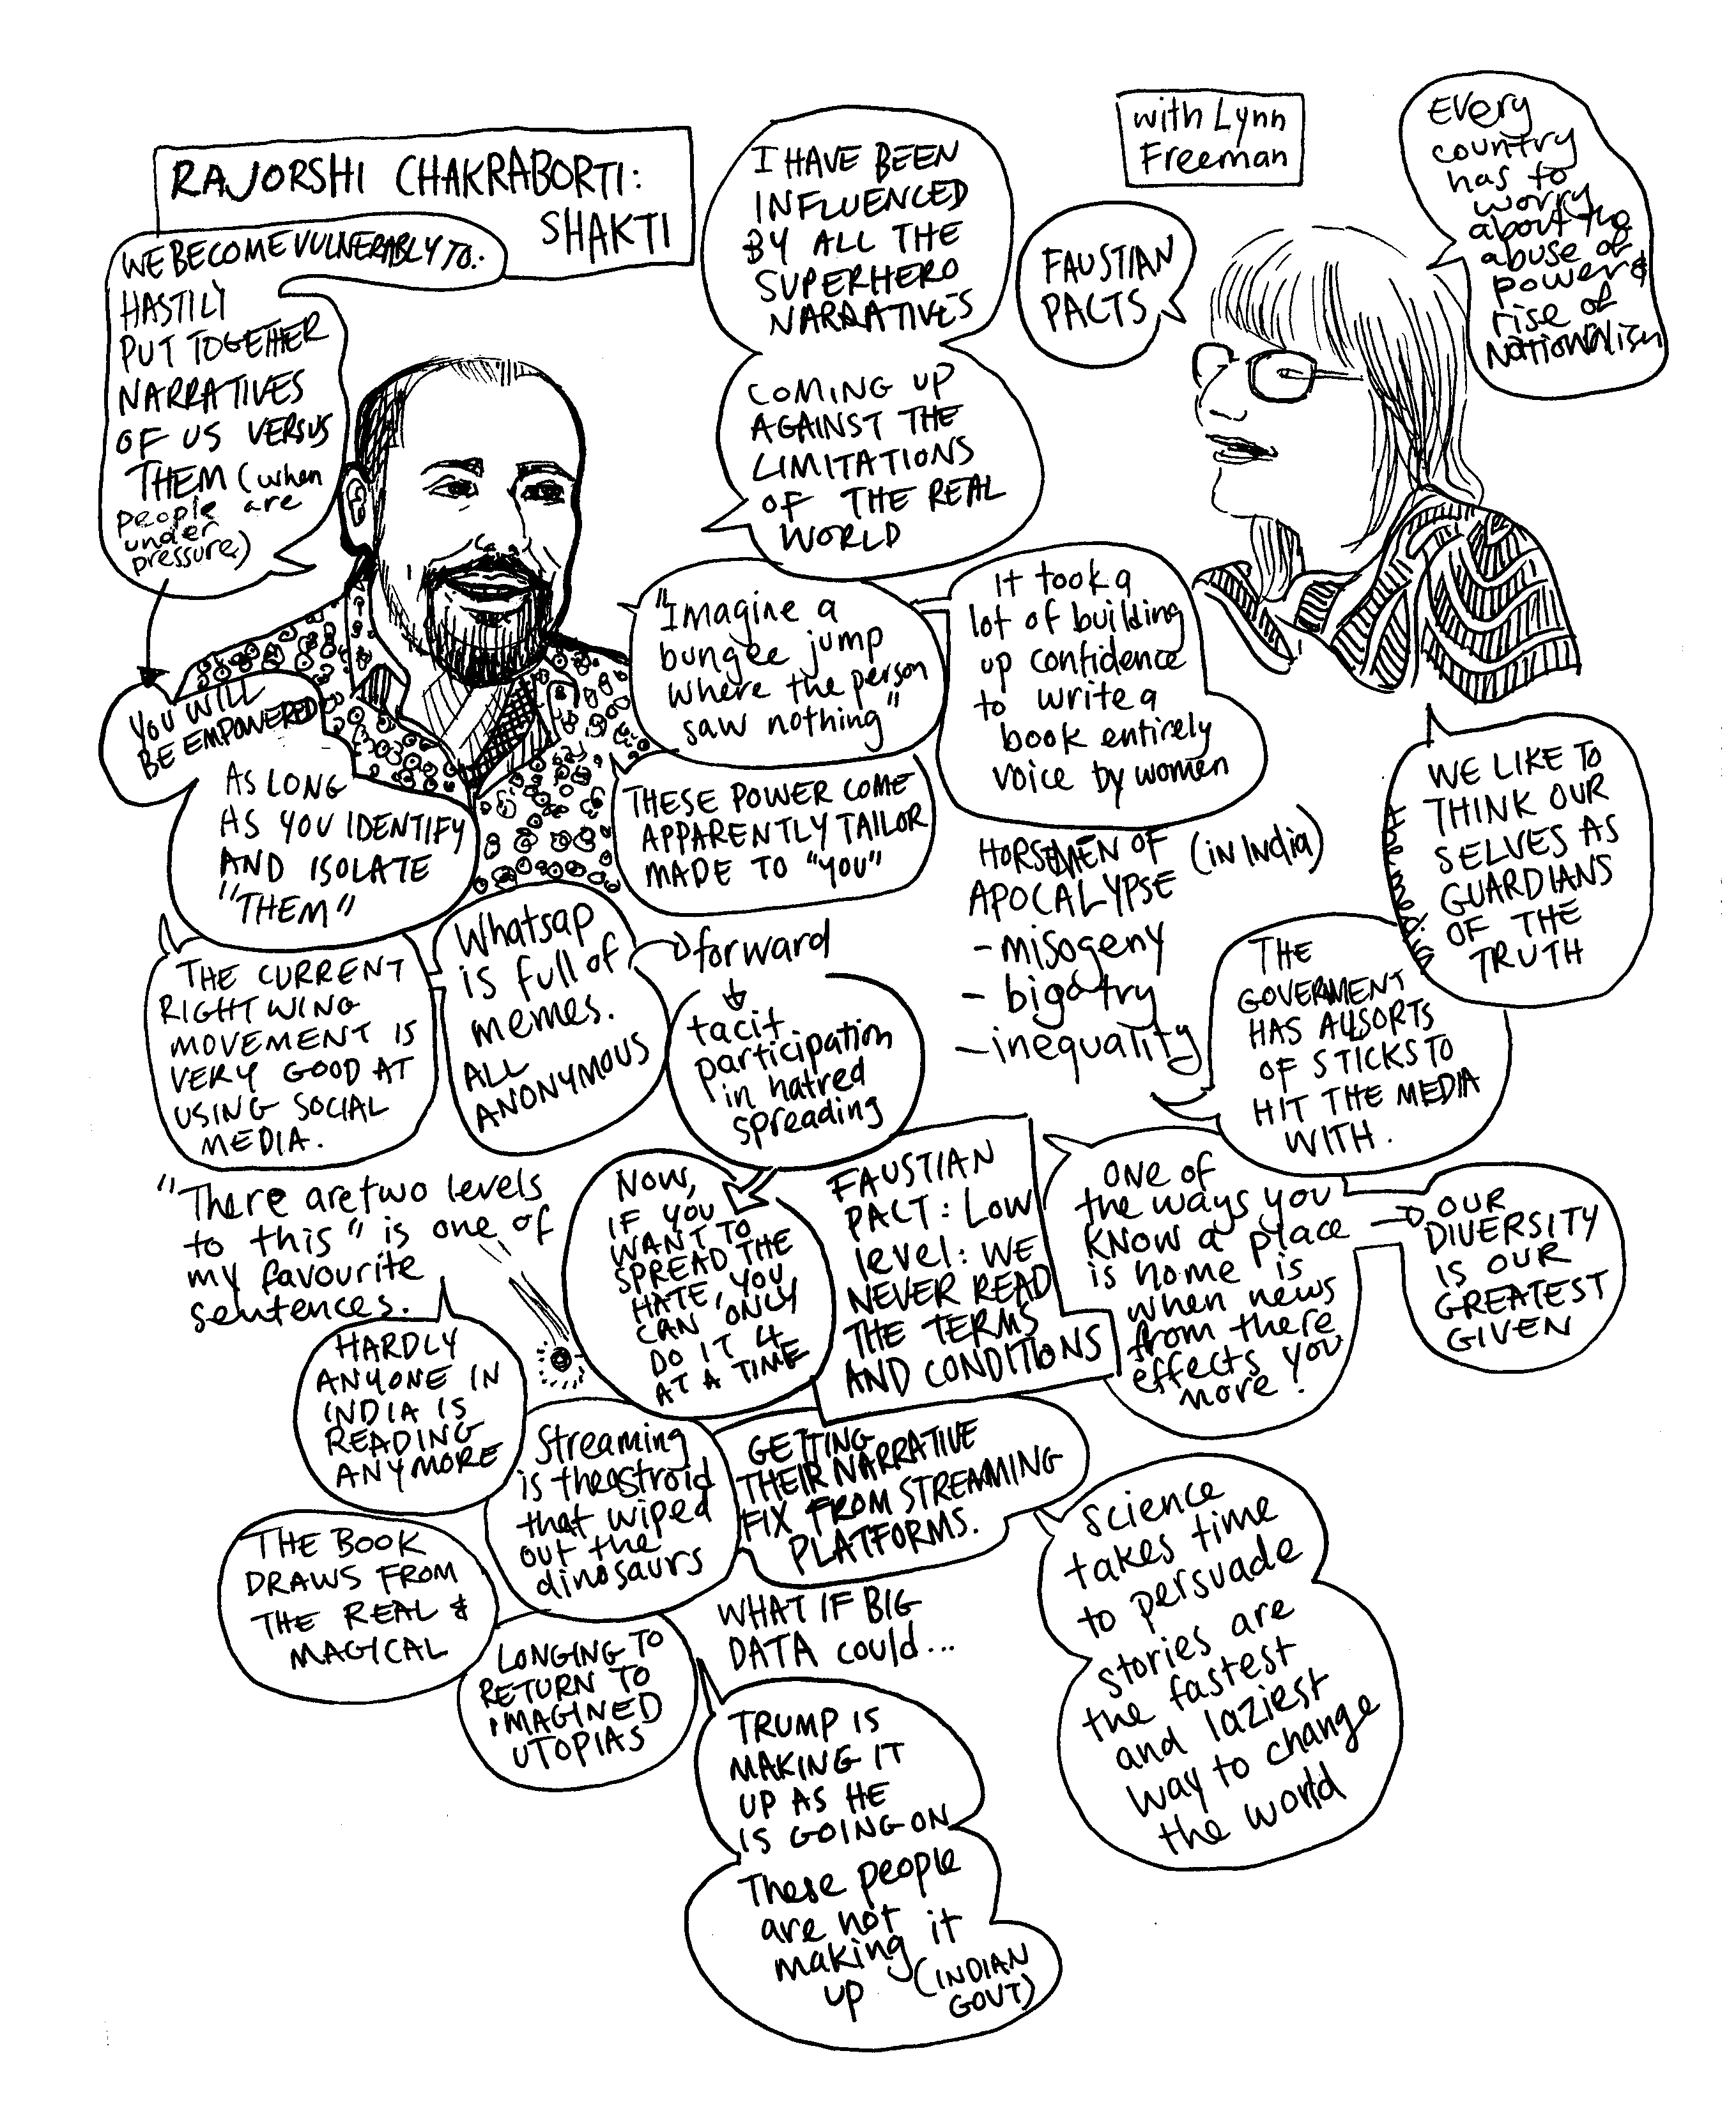 RAJORSHI CHAKRABORTI:
SHAKTI
with Lynn
Freeman
WE BECOME VULNERABLY TO..
HASTILY
PUT TOGETHER
NARRATIVES
OF US VERSUS
THEM (when
people are
under
pressure)
YOU WILL
BE EMPOWERED
AS LONG
AS YOU IDENTIFY
AND ISOLATE
"THEM"
I HAVE BEEN
INFLUENCED
BY ALL THE
SUPERHERO
NARRATIVES
COMING UP
AGAINST THE
LIMITATIONS
OF THE REAL
WORLD
FAUSTIAN
PACTS
Every
country
has to
worry
about the
abuse of
power &
rise of
Nationalism
"Imagine a
bungee jump
where the person
saw nothing"
It took a
lot of building
up confidence
to write a
book entirely
voice by women
THESE POWER COME
APPARENTLY TAILOR
MADE TO "YOU"
HORSEMEN OF (in India)
APOCALYPSE
- misogeny
- bigotry
- inequality
WE LIKE TO
THINK OUR
SELVES AS
GUARDIANS
OF THE
TRUTH
the media
THE
GOVERMENT
HAS ALLSORTS
OF STICKS TO
HIT THE MEDIA
WITH.
THE CURRENT
RIGHT WING
MOVEMENT IS
VERY GOOD AT
USING SOCIAL
MEDIA.
Whatsap
is full of
memes.
ALL
ANONYMOUS
forward
tacit
participation
in hatred
spreading
NOW,
IF YOU
WANT TO
SPREAD THE
HATE, YOU
CAN ONLY
DO IT 4
AT A TIME
FAUSTIAN
PACT: Low
level: WE
NEVER READ
THE TERMS
AND CONDITIONS
ONE OF
the ways you
KNOW a place
is home is
when news
from there
effects you
more!
OUR
DIVERSITY
IS OUR
GREATEST
GIVEN
"There are two levels
to this" is one of
my favourite
sentences.
HARDLY
ANYONE IN
INDIA IS
READING
ANYMORE
Streaming
is the astroid
that wiped
out the
dinosaurs
GETTING
THEIR NARRATIVE
FIX FROM STREAMING
PLATFORMS.
THE BOOK
DRAWS FROM
THE REAL &
MAGICAL
LONGING TO
RETURN TO
IMAGINED
UTOPIAS
WHAT IF BIG
DATA could...
TRUMP IS
MAKING IT
UP AS HE
IS GOING ON
These people
are not
making it
up (INDIAN
GOVT)
Science
takes time
to persuade
stories are
the fastest
and laziest
way to change
the world